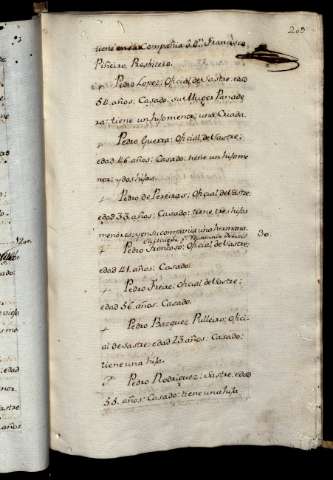 203
tiene en su Compañia à Dn. Francisco
Piñeiro Presbitero.
+ Pedro Lopez: Oficial de Sastre, edad
54. años: Casado, su Muger Panade
ra: tiene un hijo menor, una Criada.
+ Pedro Guerra: Oficial de Sastre:
edad 46 años: Casado: tiene un hijo me
nor, y dos hijas.
+ Pedro de Pereiras, Oficial de Sastre.
edad 33 años: Casado: tiene tres hijos
menores, y en su compañia una hermana.
+ Pedro Frontoso: Oficial de Sastre:
30
edad 41. años: Casado.
+ Pedro Freire: Oficial de Sastre:
edad 56. años: Casado.
+ Pedro Bazquez Pilleiro: Ofici
al de Sastre: edad 23. años: Casado:
tiene una hija.
+ Pedro Rodriguez: Sastre, edad
55. años: Casado: tiene una hija